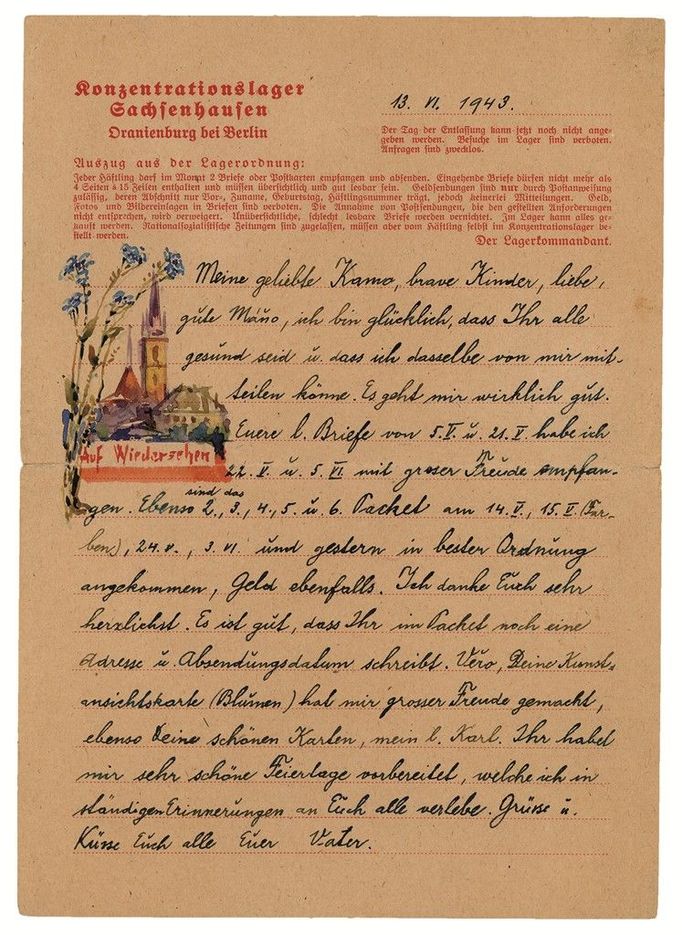 Konzentrationslager
Sachsenhausen
Oranienburg bei Berlin
13. VI. 1943.
Der Tag der Entlassung kann jetzt noch nicht ange-
geben werden. Besuche im Lager sind verboten.
Anfragen sind zwecklos.
Auszug aus der Lagerordnung:
Jeder Häftling darf im Monat 2 Briefe oder Postkarten empfangen und absenden. Eingehende Briefe dürfen nicht mehr als
4 Seiten à 15 Zeilen enthalten und müssen übersichtlich und gut lesbar sein. Geldsendungen sind nur durch Postanweisung
zulässig, deren Abschnitt nur Vor-, Zuname, Geburtstag, Häftlingsnummer trägt, jedoch keinerlei Mitteilungen. Geld,
Fotos und Bildereinlagen in Briefen sind verboten. Die Annahme von Postsendungen, die den gestellten Anforderungen
nicht entsprechen, wird verweigert. Unübersichtliche, schlecht lesbare Briefe werden vernichtet. Im Lager kann alles ge-
kauft werden. Nationalsozialistische Zeitungen sind zugelassen, müssen aber vom Häftling selbst im Konzentrationslager be-
stellt werden.
Der Lagerkommandant.
Meine geliebte Kamo, brave Kinder, liebe,
gute Máňo, ich bin glücklich, dass Ihr alle
gesund seid u. dass ich dasselbe von mir mit-
teilen könne. Es geht mir wirklich gut.
Euere l. Briefe von 5.V. u. 21.V. habe ich
Auf Wiedersehen
22. V. u. 5. VI mit groser Freude empfan-
gen. Ebenso sind das 2., 3., 4., 5. u. 6. Packet am 14. V., 15. V. (Far-
ben), 24. V., 3. VI und gestern in bester Ordnung
angekommen, Geld ebenfalls. Ich danke Euch sehr
herzlichst. Es ist gut, dass Ihr im Packet noch eine
Adresse u. Absendungsdatum schreibt. Věro, Deine Kunst-
ansichtskarte (Blumen) hat mir grosser Freude gemacht,
ebenso Deine schönen Karten, mein l. Karl. Ihr habet
mir sehr schöne Feiertage vorbereitet, welche ich in
ständigen Erinnerungen an Euch alle verlebe. Grüsse u.
Küsse Euch alle Euer Vater.